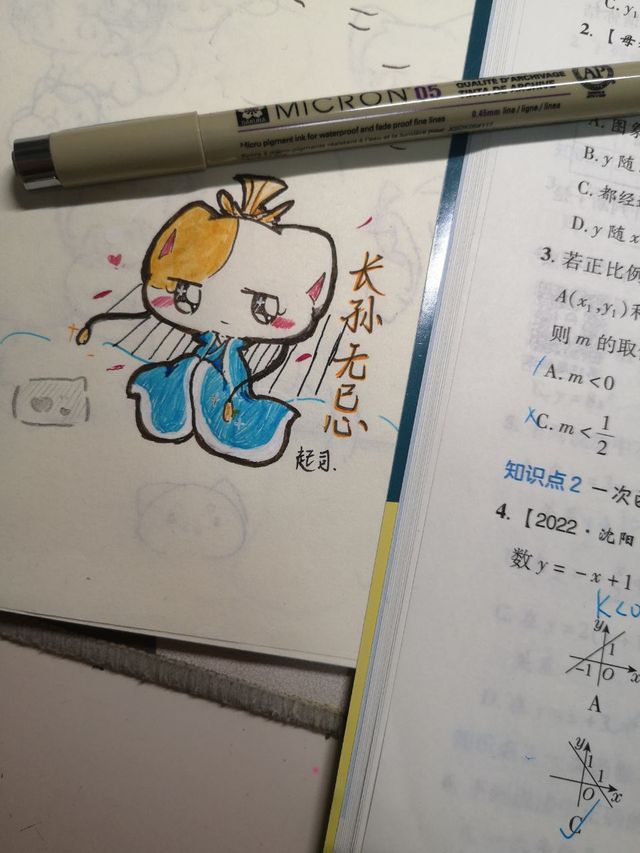 MICRON 05
QUALITÉ D'ARCHIVAGE
TINTA DE ARCHIVE
AP
0.45mm line / ligne / lines
Micro pigment ink for waterproof and fade proof fine lines
长孙无忌
起司.
C. y₁
2.【母
A. 图象
B. y 随
C. 都经
D. y 随 x
3. 若正比例
A(x₁,y₁)和
则 m 的取
A. m<0
C. m<1/2
知识点2 一次
4.【2022·沈阳
数 y=-x+1
K<0
y
1
-1 O x
A
y
1
1
O x
C